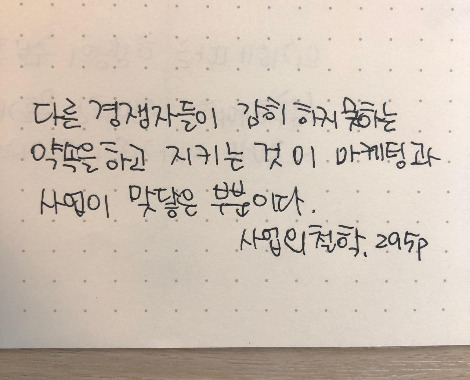 다른 경쟁자들이 감히 하지 못하는
약속을 하고 지키는 것이 마케팅과
사업이 맞닿은 부분이다.
사업의 철학. 295p